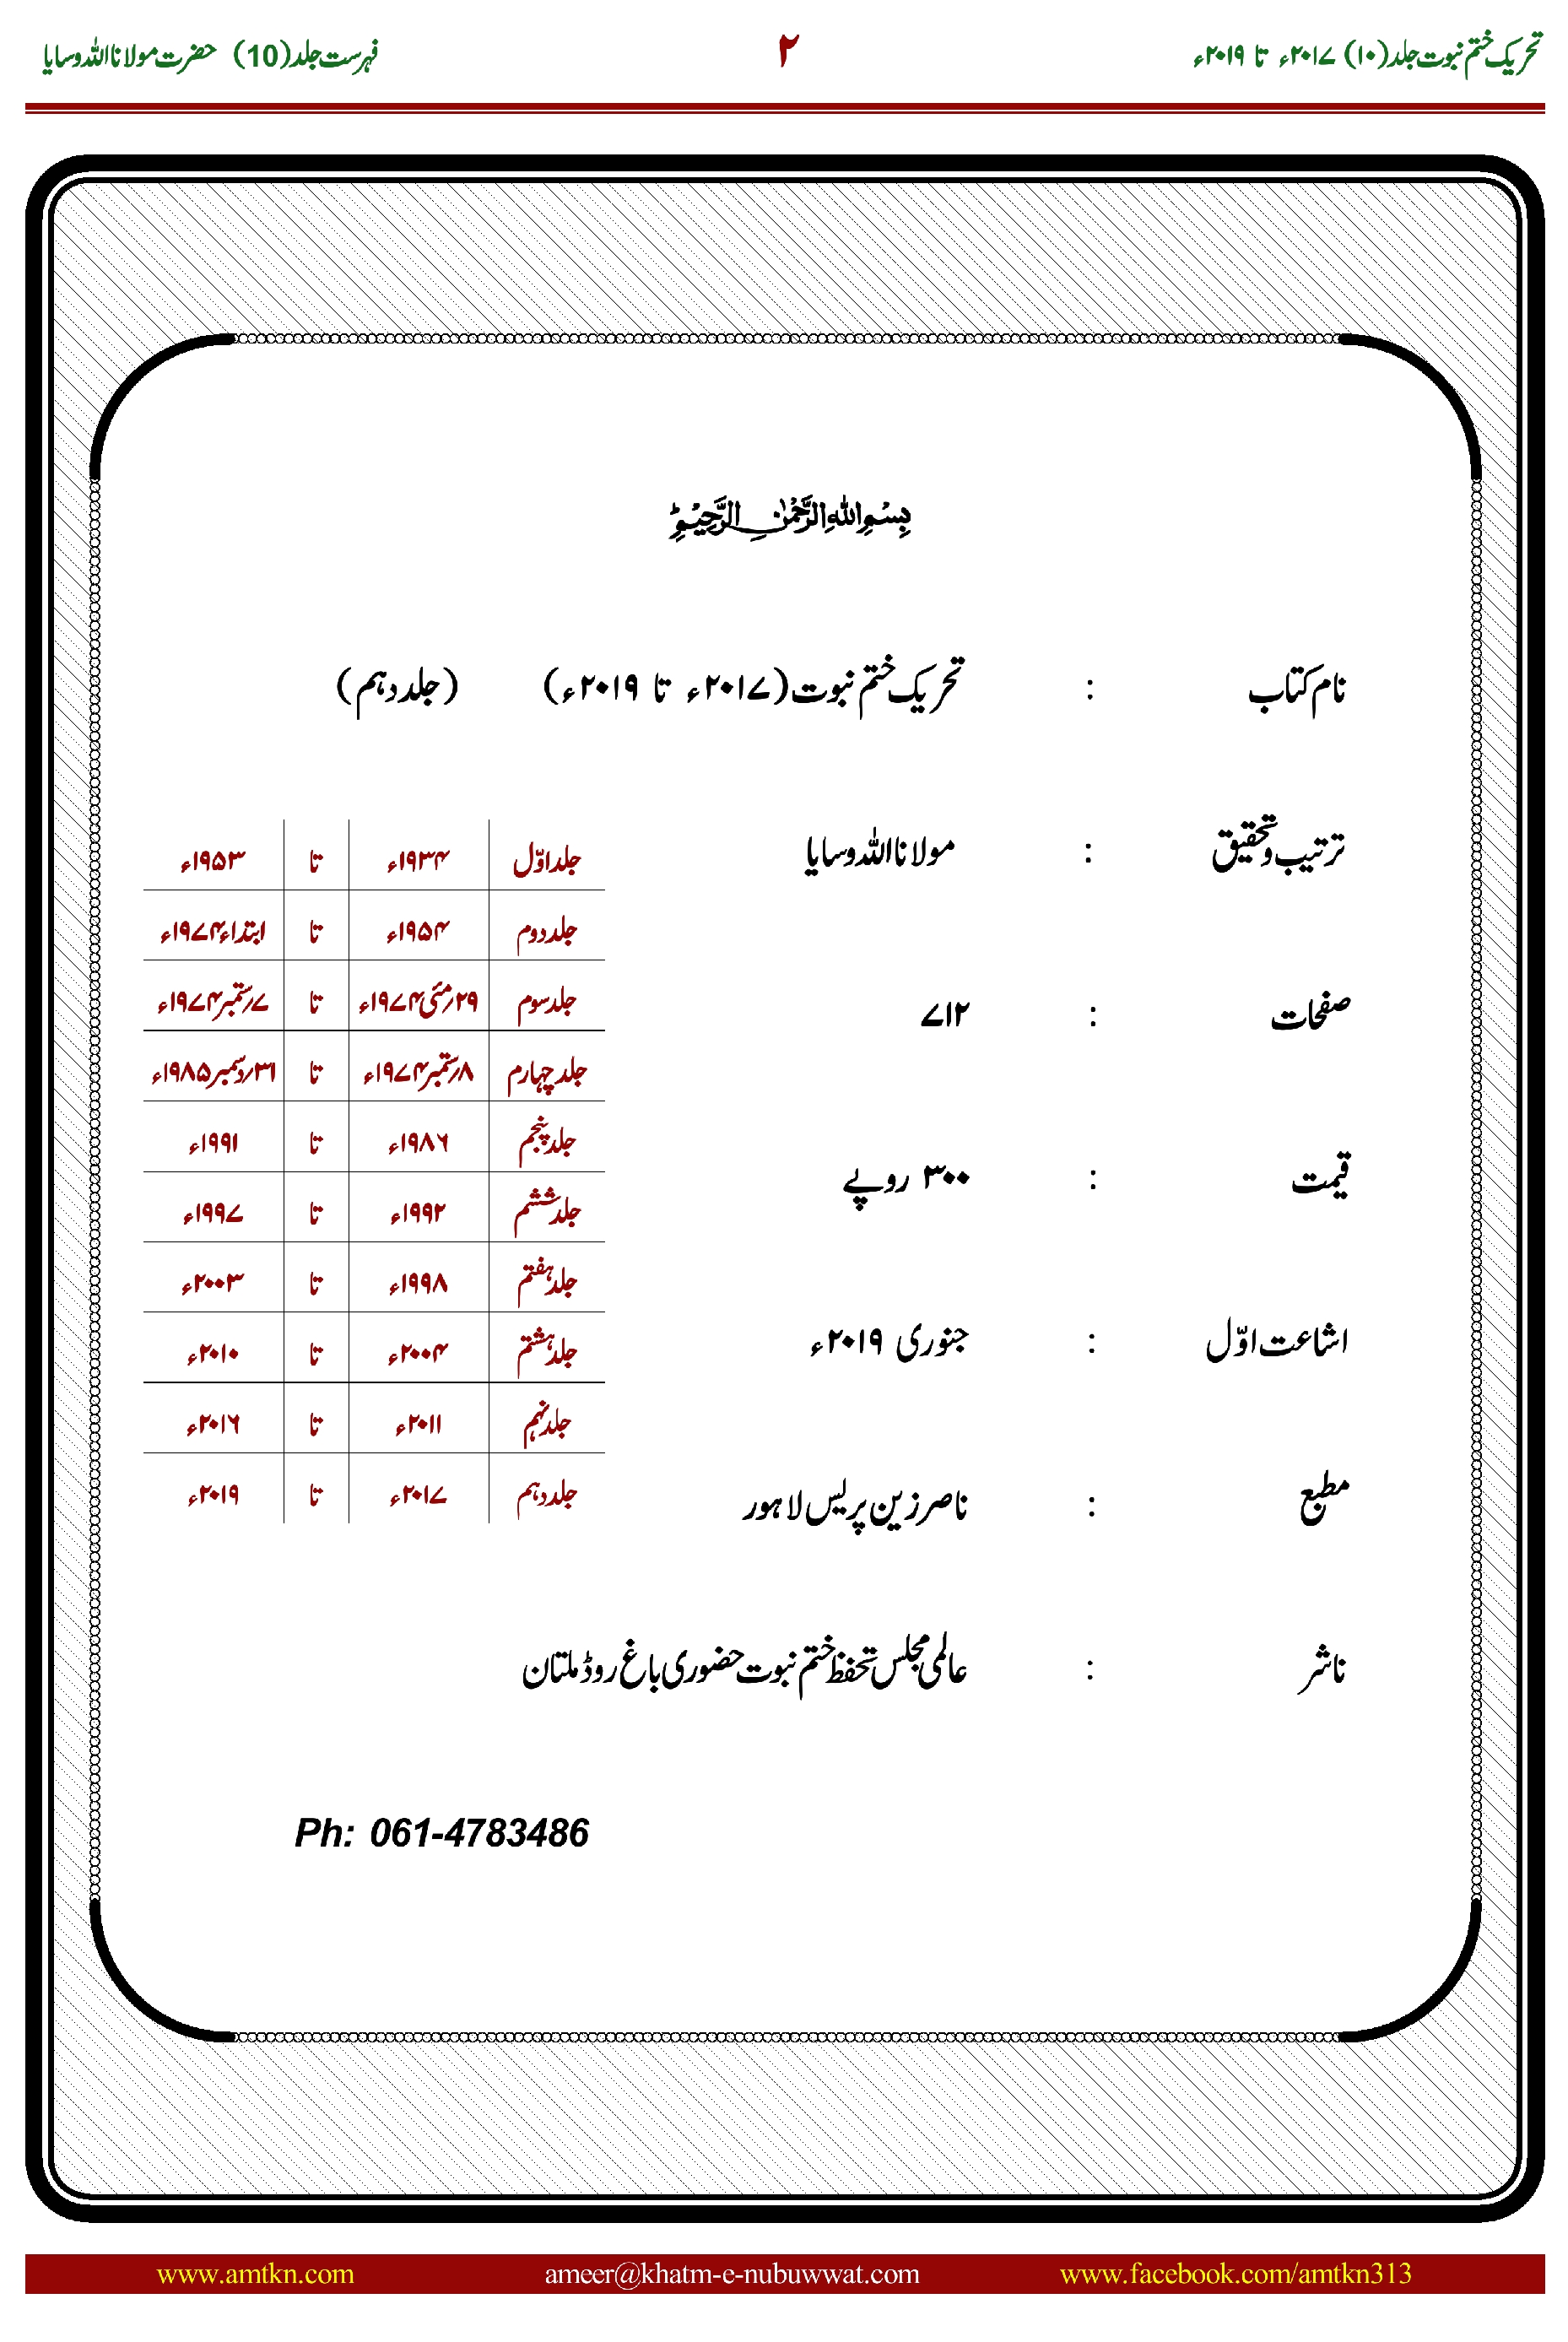 تحریک ختم نبوت جلد (۱۰) ۲۰۱۷ء تا ۲۰۱۹ء ۲ فہرست جلد (10) حضرت مولانا اللہ وسایا
بِسْمِ اللہِ الرَّحْمٰنِ الرَّحِیْمِ
نام کتاب : تحریک ختم نبوت (۲۰۱۷ء تا ۲۰۱۹ء) (جلد دہم)
ترتیب و تحقیق : مولانا اللہ وسایا
صفحات : ۷۱۲
قیمت : ۳۰۰ روپے
اشاعت اوّل : جنوری ۲۰۱۹ء
مطبع : ناصر زین پریس لاہور
ناشر : عالمی مجلس تحفظ ختم نبوت حضوری باغ روڈ ملتان
جلد اوّل ۱۹۳۴ء تا ۱۹۵۳ء
جلد دوم ۱۹۵۴ء تا ابتداء ۱۹۷۴ء
جلد سوم ۲۹؍مئی ۱۹۷۴ء تا ۷؍ستمبر ۱۹۷۴ء
جلد چہارم ۸؍ستمبر ۱۹۷۴ء تا ۳۱؍دسمبر ۱۹۸۵ء
جلد پنجم ۱۹۸۶ء تا ۱۹۹۱ء
جلد ششم ۱۹۹۲ء تا ۱۹۹۷ء
جلد ہفتم ۱۹۹۸ء تا ۲۰۰۳ء
جلد ہشتم ۲۰۰۴ء تا ۲۰۱۰ء
جلد نہم ۲۰۱۱ء تا ۲۰۱۶ء
جلد دہم ۲۰۱۷ء تا ۲۰۱۹ء
Ph: 061-4783486
www.amtkn.com ameer@khatm-e-nubuwwat.com www.facebook.com/amtkn313